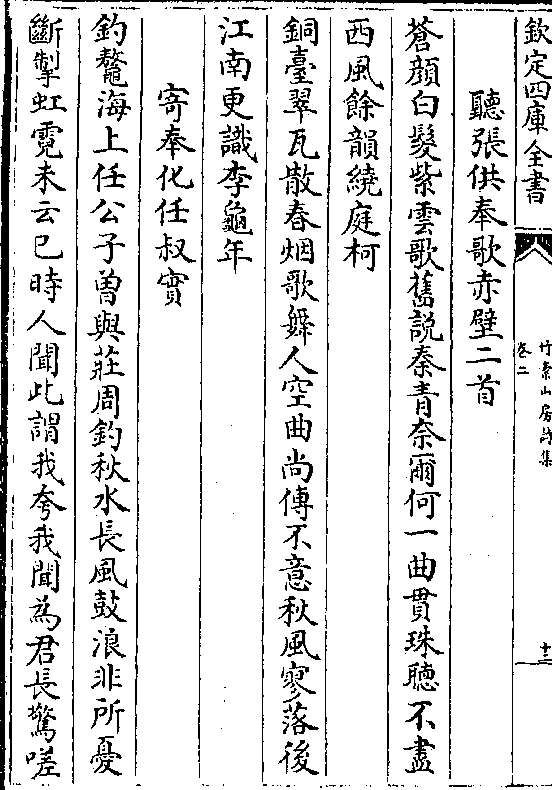 欽定四庫全書
竹素山房詩集
卷二
十三
聽張供奉歌赤壁二首
蒼顔白髮紫雲歌舊説秦青奈爾何一曲貫珠聽不盡
西風餘韻繞庭柯
銅臺翠瓦散春烟歌舞人空曲尚傳不意秋風寥落後
江南更識李龜年
寄奉化任叔實
釣鼇海上任公子曽與莊周釣秋水長風鼓浪非所憂
斷掣虹霓未云已時人聞此謂我夸我聞為君長驚嗟